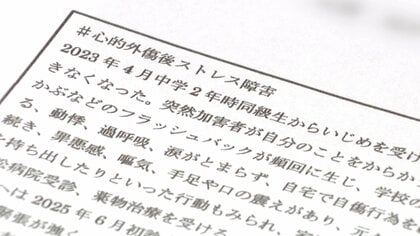 #心的外傷後ストレス障害
2023年4月中学2年時同級生からいじめを受
きなくなった。突然加害者が自分のことをからか
かぶなどのフラッシュバックが頻回に生じ、学校
る、動悸、過呼吸、涙がとまらず、自宅で自傷行為を
続き、罪悪感、嘔気、手足や口の震えがあり、元
と持ち出したりといった行動もみられ、家
病院受診、薬物治療を受ける
へは2025年6月初診